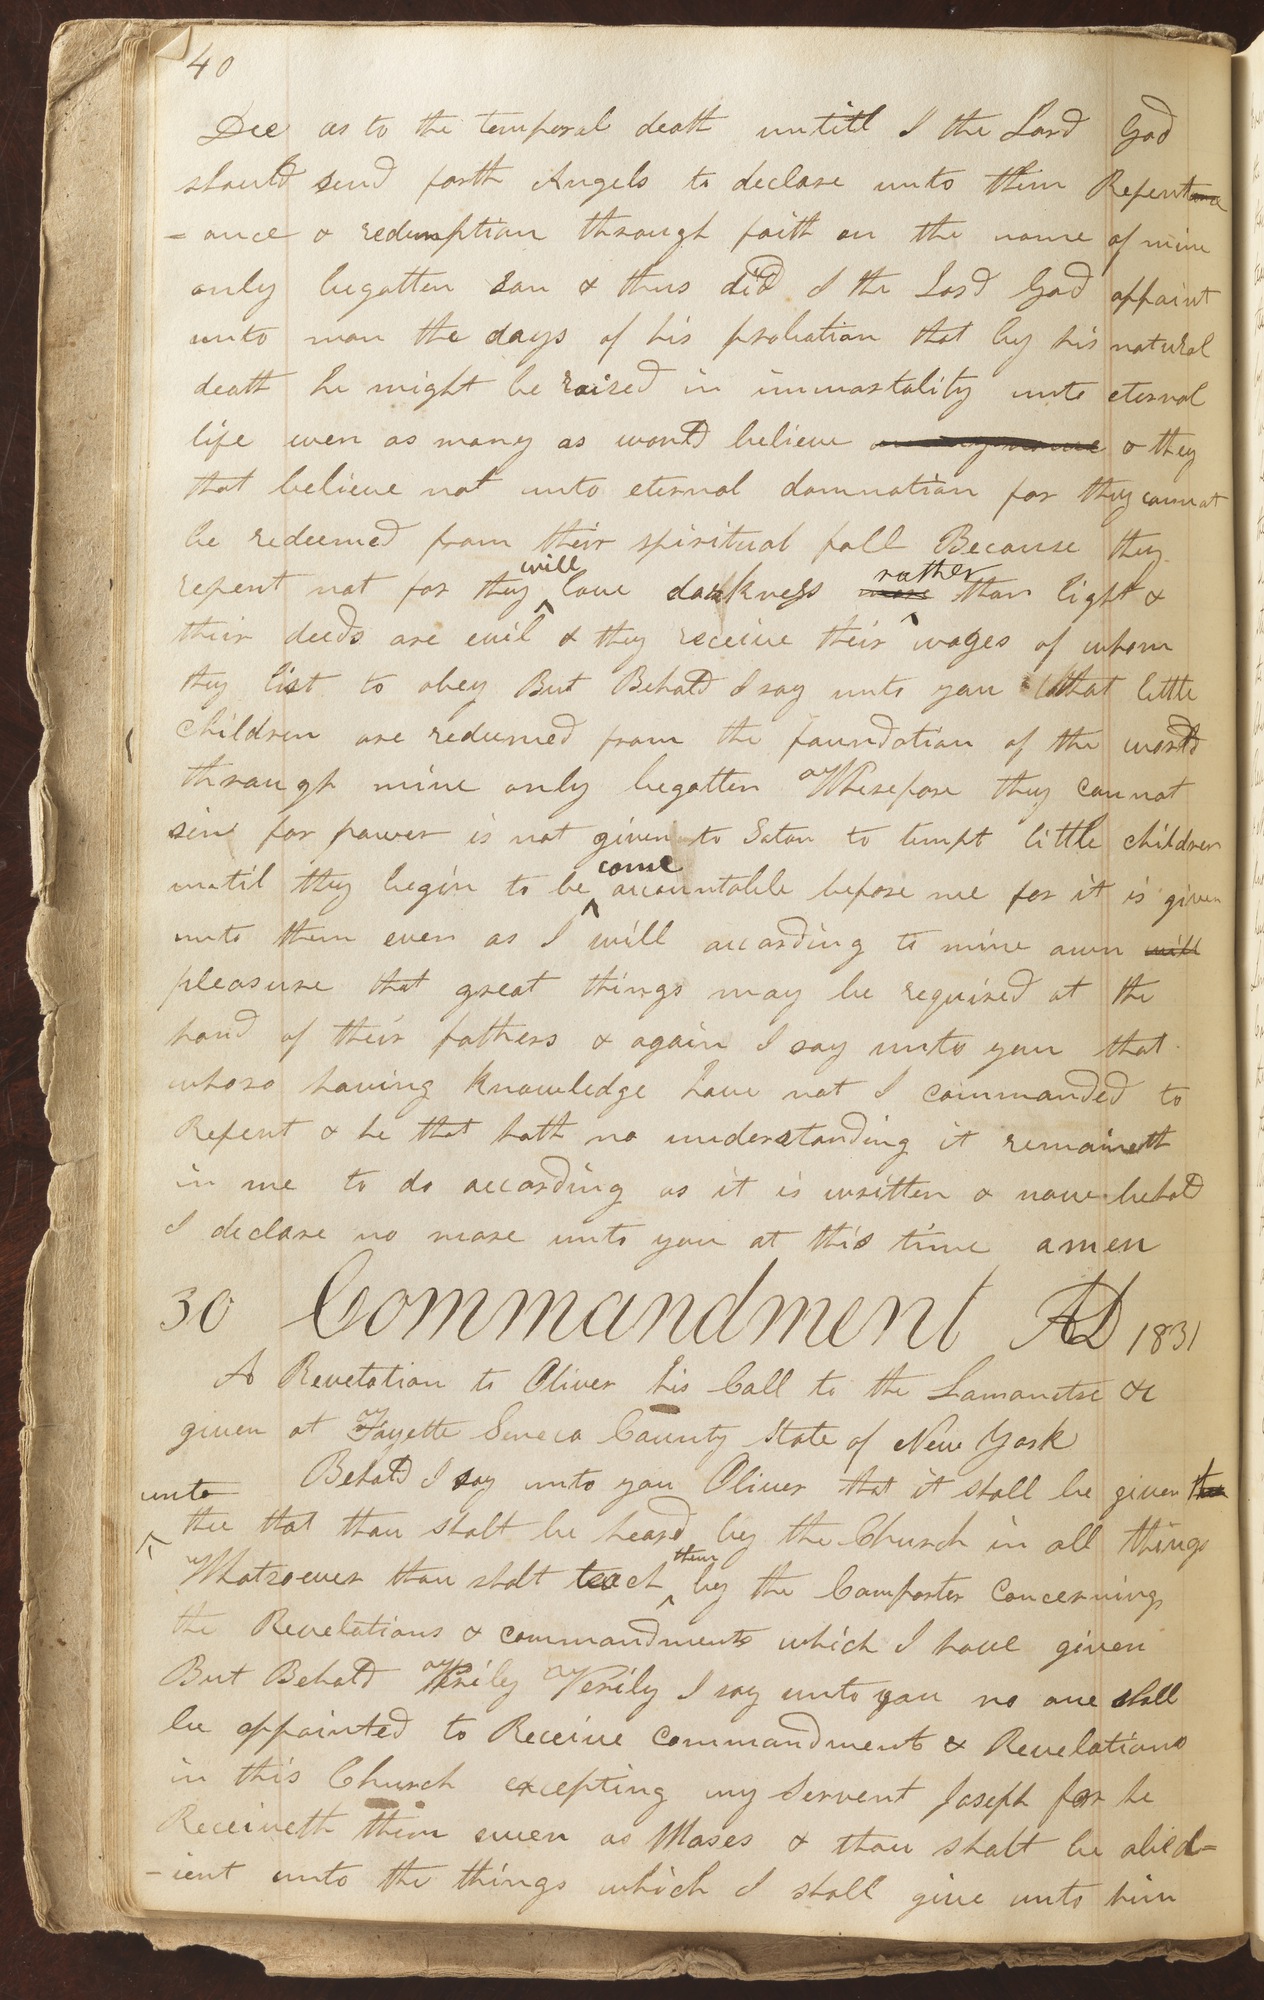 40
Dee as to the temporal death untill I the Lord God
should send forth Angels to declare unto them Repent
-ance & redemption through faith on the name of mine
only begotten Son & thus did I the Lord God appoint
unto man the days of his probation that by his natural
death he might be raised in immortality unto eternal
life even as many as would believe on my name & they
that believe not unto eternal damnation for they cannot
be redeemed from their spiritual fall Because they
repent not for they will love darkness more rather than light &
their deeds are evil & they receive their wages of whom
they list to obey But Behold I say unto you that little
children are redeemed from the foundation of the world
through mine only begotten Wherefore they cannot
sin for power is not given to Satan to tempt little children
until they begin to be come accountable before me for it is given
unto them even as I will according to mine own will
pleasure that great things may be required at the
hand of their fathers & again I say unto you that
whoso having knowledge have not I commanded to
Repent & he that hath no understanding it remaineth
in me to do according as it is written & now behold
I declare no more unto you at this time amen
30 Commandment AD 1831
A Revelation to Oliver his Call to the Lamanites &c
given at Fayette Seneca County State of New York
Behold I say unto you Oliver that it shall be given
unto thee that thou shalt be heard by the Church in all things
Whatsoever thou shalt teach them by the Comforter Concerning
the Revelations & commandments which I have given
But Behold Verily Verily I say unto you no one shall
be appointed to Receive commandments & Revelations
in this Church excepting my Servent Joseph for he
Receiveth them even as Moses & thou shalt be obed=
-ient unto the things which I shall give unto him